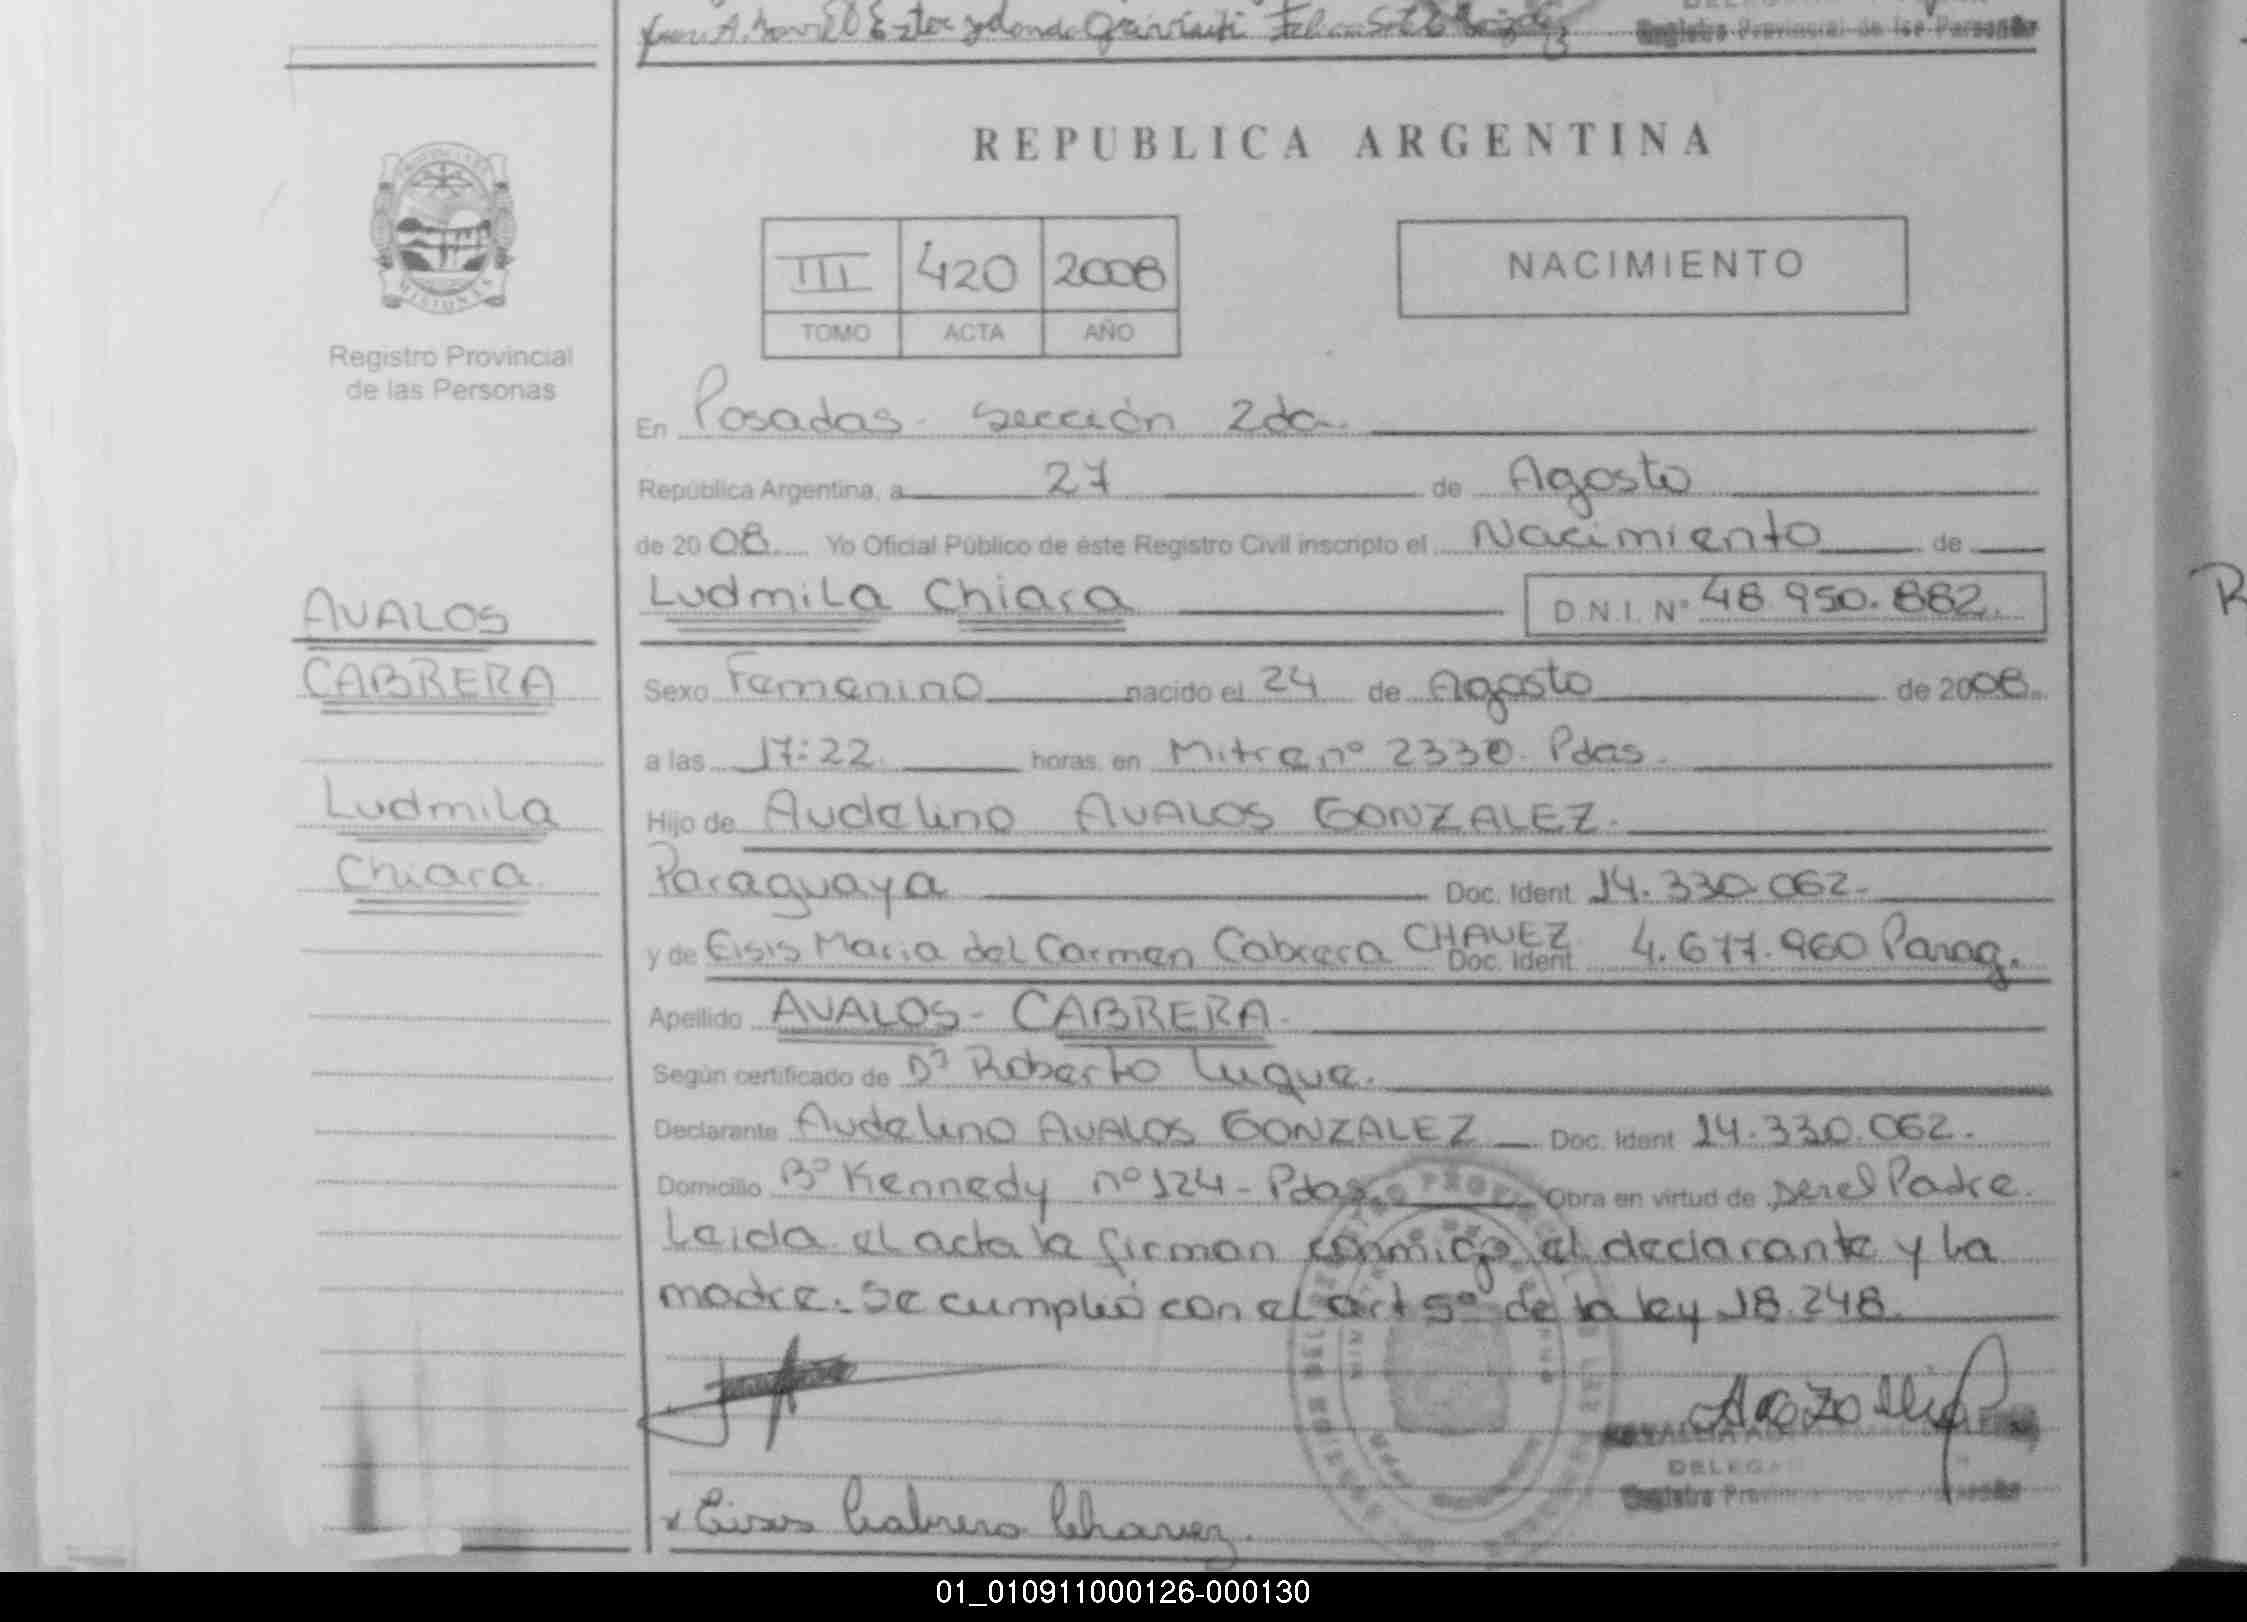 REPUBLICA ARGENTINA
PROVINCIA
MISIONES
Registro Provincial
de las Personas
III 420 2008
TOMO ACTA AÑO
NACIMIENTO
En Posadas - Sección 2da.
República Argentina, a 27 de Agosto
de 2008. Yo Oficial Público de éste Registro Civil inscripto el Nacimiento de
AVALOS
CABRERA
Ludmila
Chiara
Ludmila Chiara D.N.I. Nº 48.950.882.
Sexo Femenino nacido el 24 de Agosto de 2008.
a las 17:22. horas. en Mitre nº 2330. Pdas.
Hijo de Audelino AVALOS GONZALEZ.
Paraguaya Doc. Ident. 14.330.062.
y de Eisis Maria del Carmen Cabrera CHAVEZ Doc. Ident 4.677.960 Parag.
Apellido AVALOS - CABRERA.
Según certificado de Dr Roberto Luque.
Declarante Audelino AVALOS GONZALEZ Doc. Ident 14.330.062.
Domicilio Bº Kennedy nº 124 - Pdas. Obra en virtud de ser el Padre.
Leida el acta la firman conmigo el declarante y la
madre. Se cumplió con el art 5º de la ley 18.248.
Eisis Cabrera Chavez.
DELEGA
Registro Provin
01_010911000126-000130